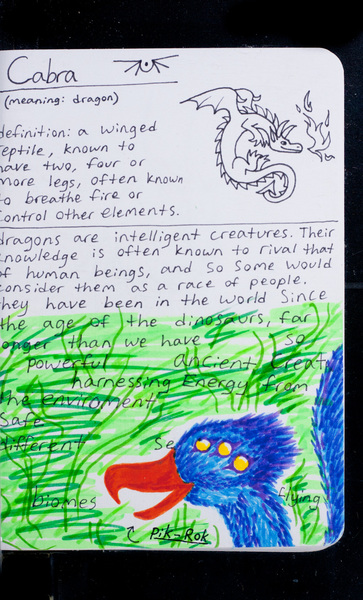 Cabra
(meaning: dragon)
definition: a winged
reptile, known to
have two, four or
more legs, often known
to breathe fire or
control other elements.
dragons are intelligent creatures. Their
knowledge is often known to rival that
of human beings, and so some would
consider them as a race of people.
they have been in the world since
the age of the dinosaurs, far
longer than we have so
powerful ancient creat
harnessing Energy from
the enviroment
Safe
different Se
biomes flying
Pik-Rok